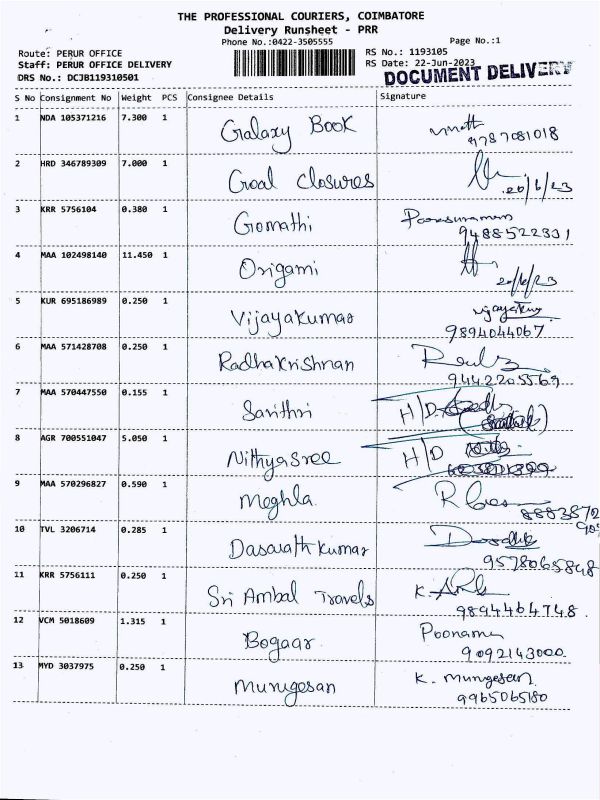 THE PROFESSIONAL COURIERS, COIMBATORE
Delivery Runsheet - PRR
Phone No.:0422-3505555
Page No.:1
Route: PERUR OFFICE
RS No.: 1193105
Staff: PERUR OFFICE DELIVERY
RS Date: 22-Jun-2023
DRS No.: DCJB119310501
DOCUMENT DELIVERY
S No Consignment No Weight PCS Consignee Details Signature
1 NDA 105371216 7.300 1 Galaxy Book
9787081018
2 HRD 346789309 7.000 1 Goal closures 20/6/23
3 KRR 5756104 0.380 1 Gomathi
9488522331
4 MAA 102498140 11.450 1 Origami
20/6/23
5 KUR 695186989 0.250 1 Vijayakumar Vijayakumar
9894044067
6 MAA 571428708 0.250 1 Radhakrishnan
9442205569
7 MAA 570447550 0.155 1 Savithri H/D
8 AGR 700551047 5.050 1 Nithyasree H/D
9 MAA 570296827 0.590 1 Meghla
8883872
10 TVL 3206714 0.285 1 Dasarath kumar
9578065848
11 KRR 5756111 0.250 1 Sri Ambal Travels K.
9894464748.
12 VCM 5018609 1.315 1 Bogaar
9092143000.
13 MYD 3037975 0.250 1 Murugesan K. Murugesan
9965065180